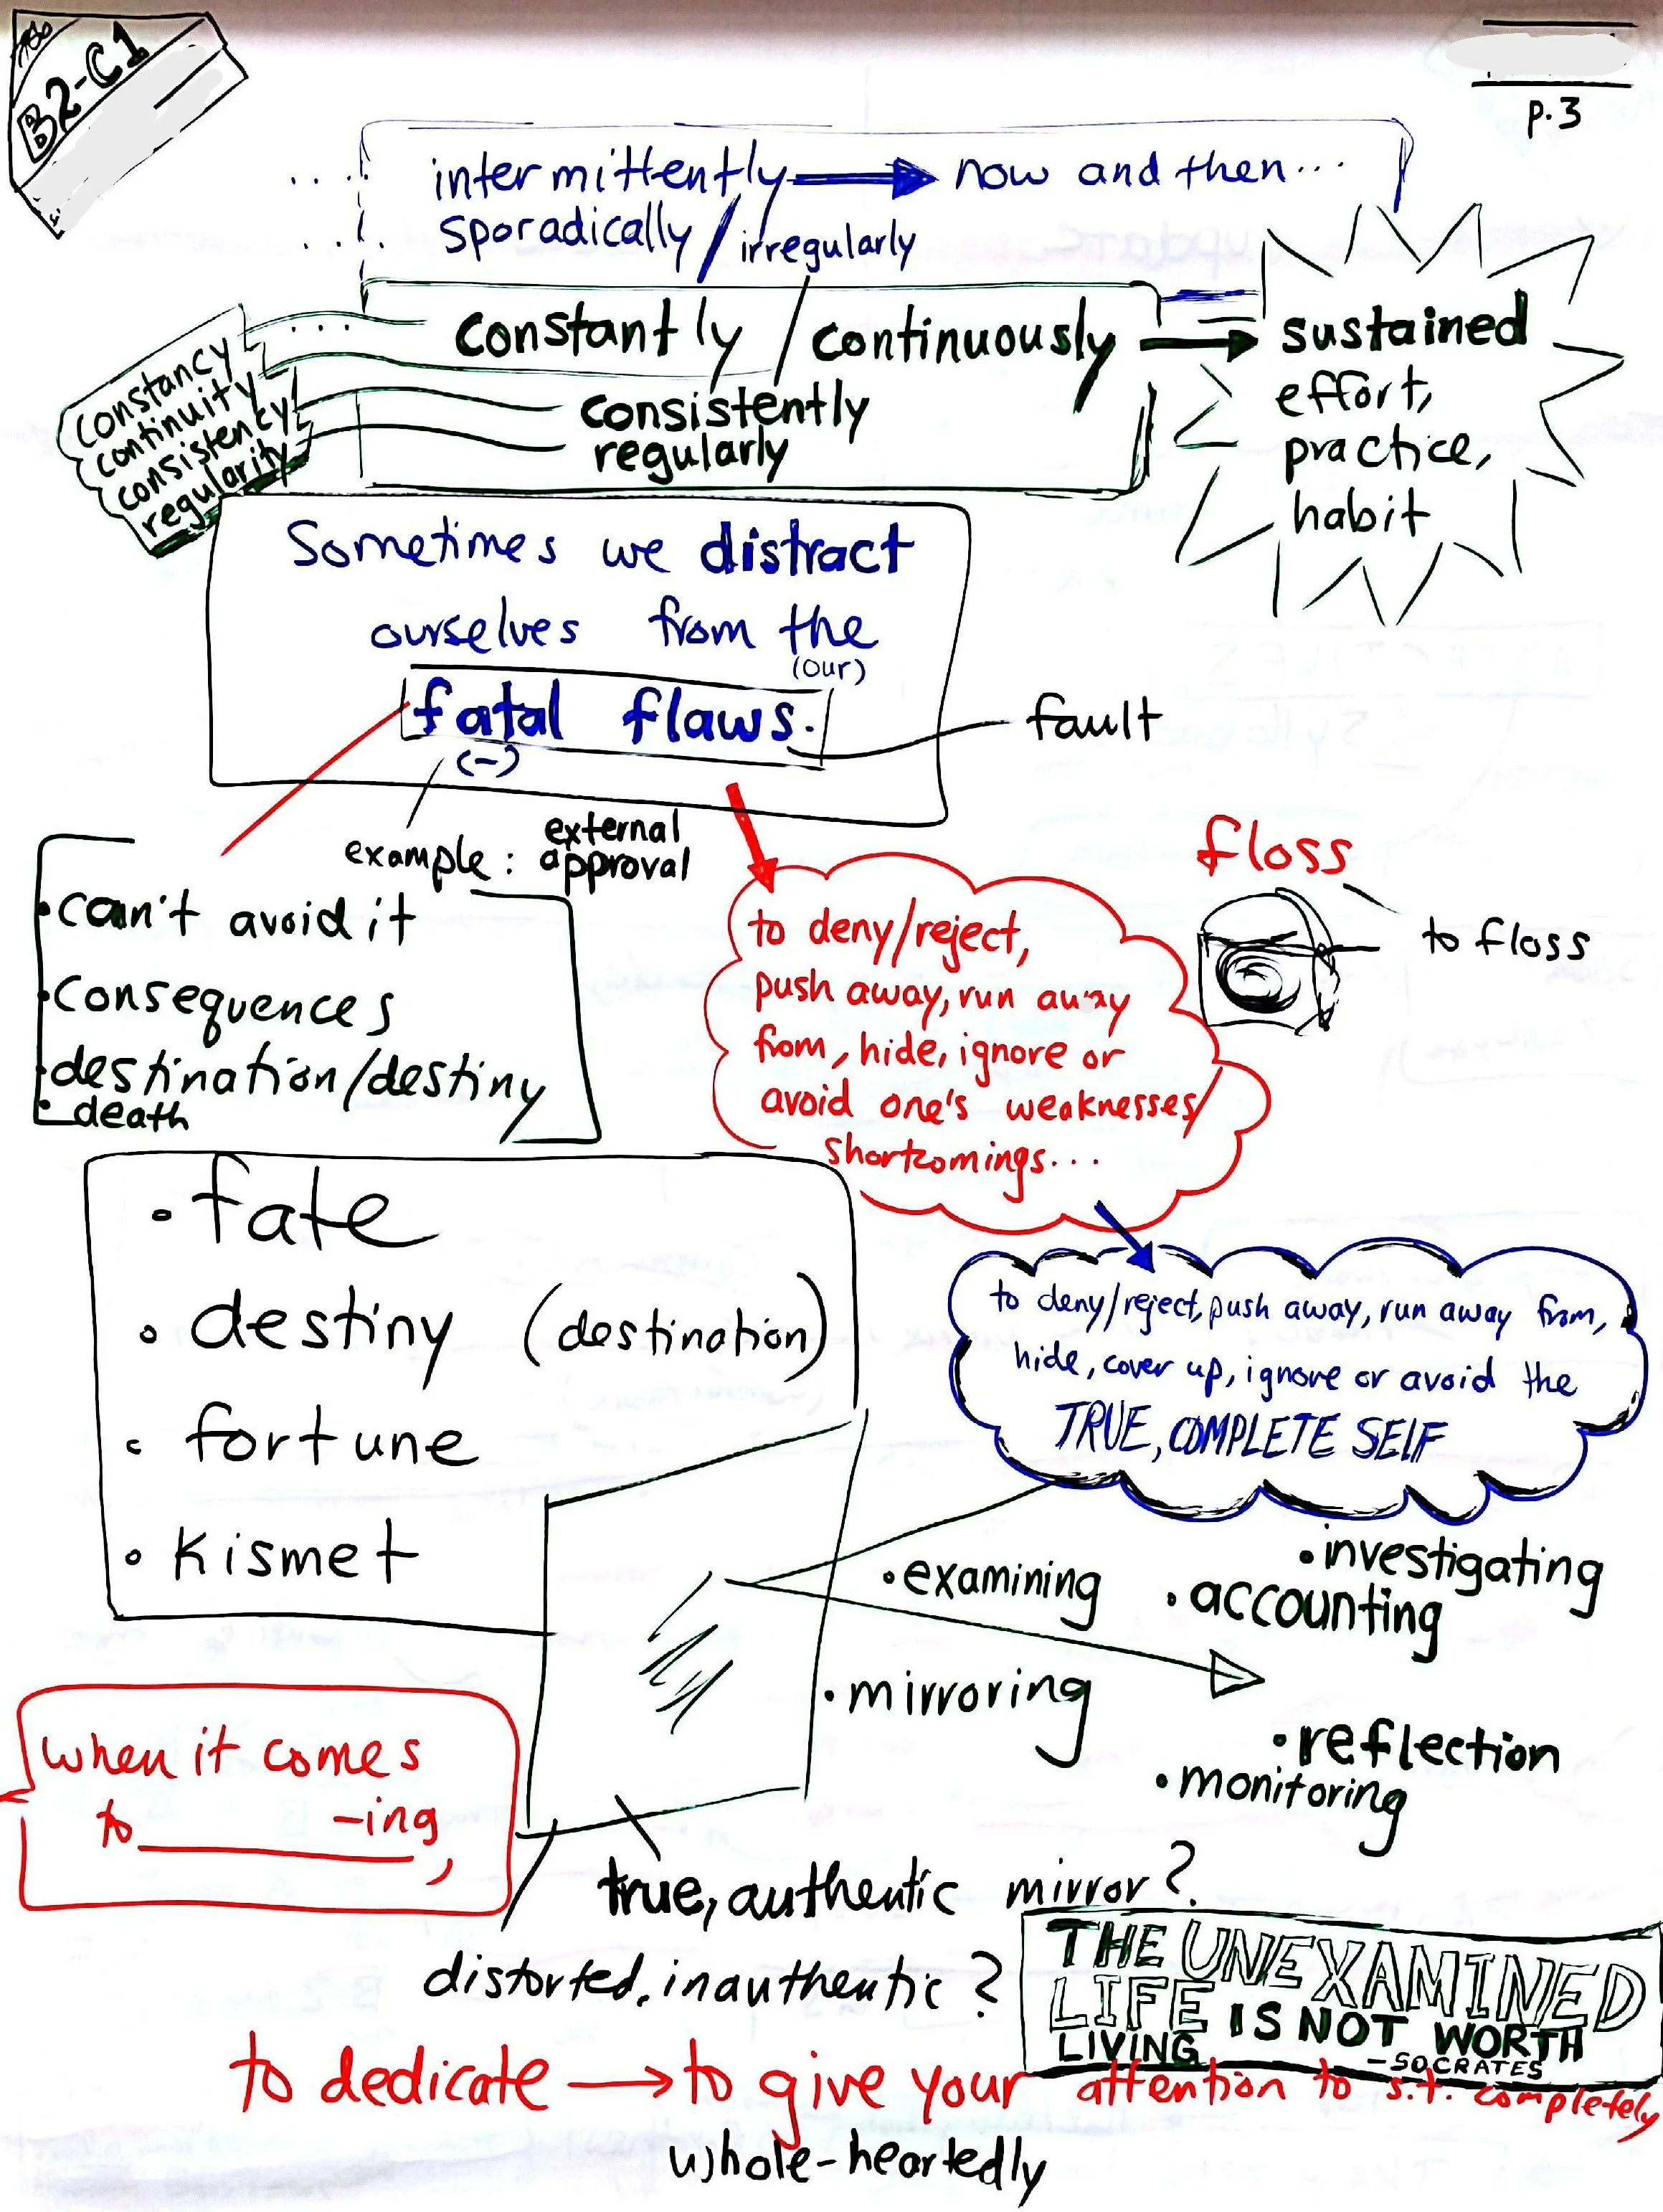 B2-C1
p.3
intermittently → now and then...
sporadically / irregularly
constantly / continuously →
consistently
regularly
sustained
effort,
practice,
habit
constancy
continuity
consistency
regularity
Sometimes we distract
ourselves from the
(our)
fatal flaws.
(-)
fault
example: external
approval
• can't avoid it
• consequences
• destination/destiny
• death
to deny/reject,
push away, run away
from, hide, ignore or
avoid one's weaknesses/
shortcomings...
floss
to floss
• fate
• destiny (destination)
• fortune
• kismet
to deny/reject, push away, run away from,
hide, cover up, ignore or avoid the
TRUE, COMPLETE SELF
• examining
• investigating
• accounting
• mirroring
• reflection
• monitoring
when it comes
to ________ -ing,
true, authentic mirror?
distorted, inauthentic?
THE UNEXAMINED
LIFE IS NOT WORTH
LIVING
-SOCRATES
to dedicate → to give your attention to s.t. completely
whole-heartedly